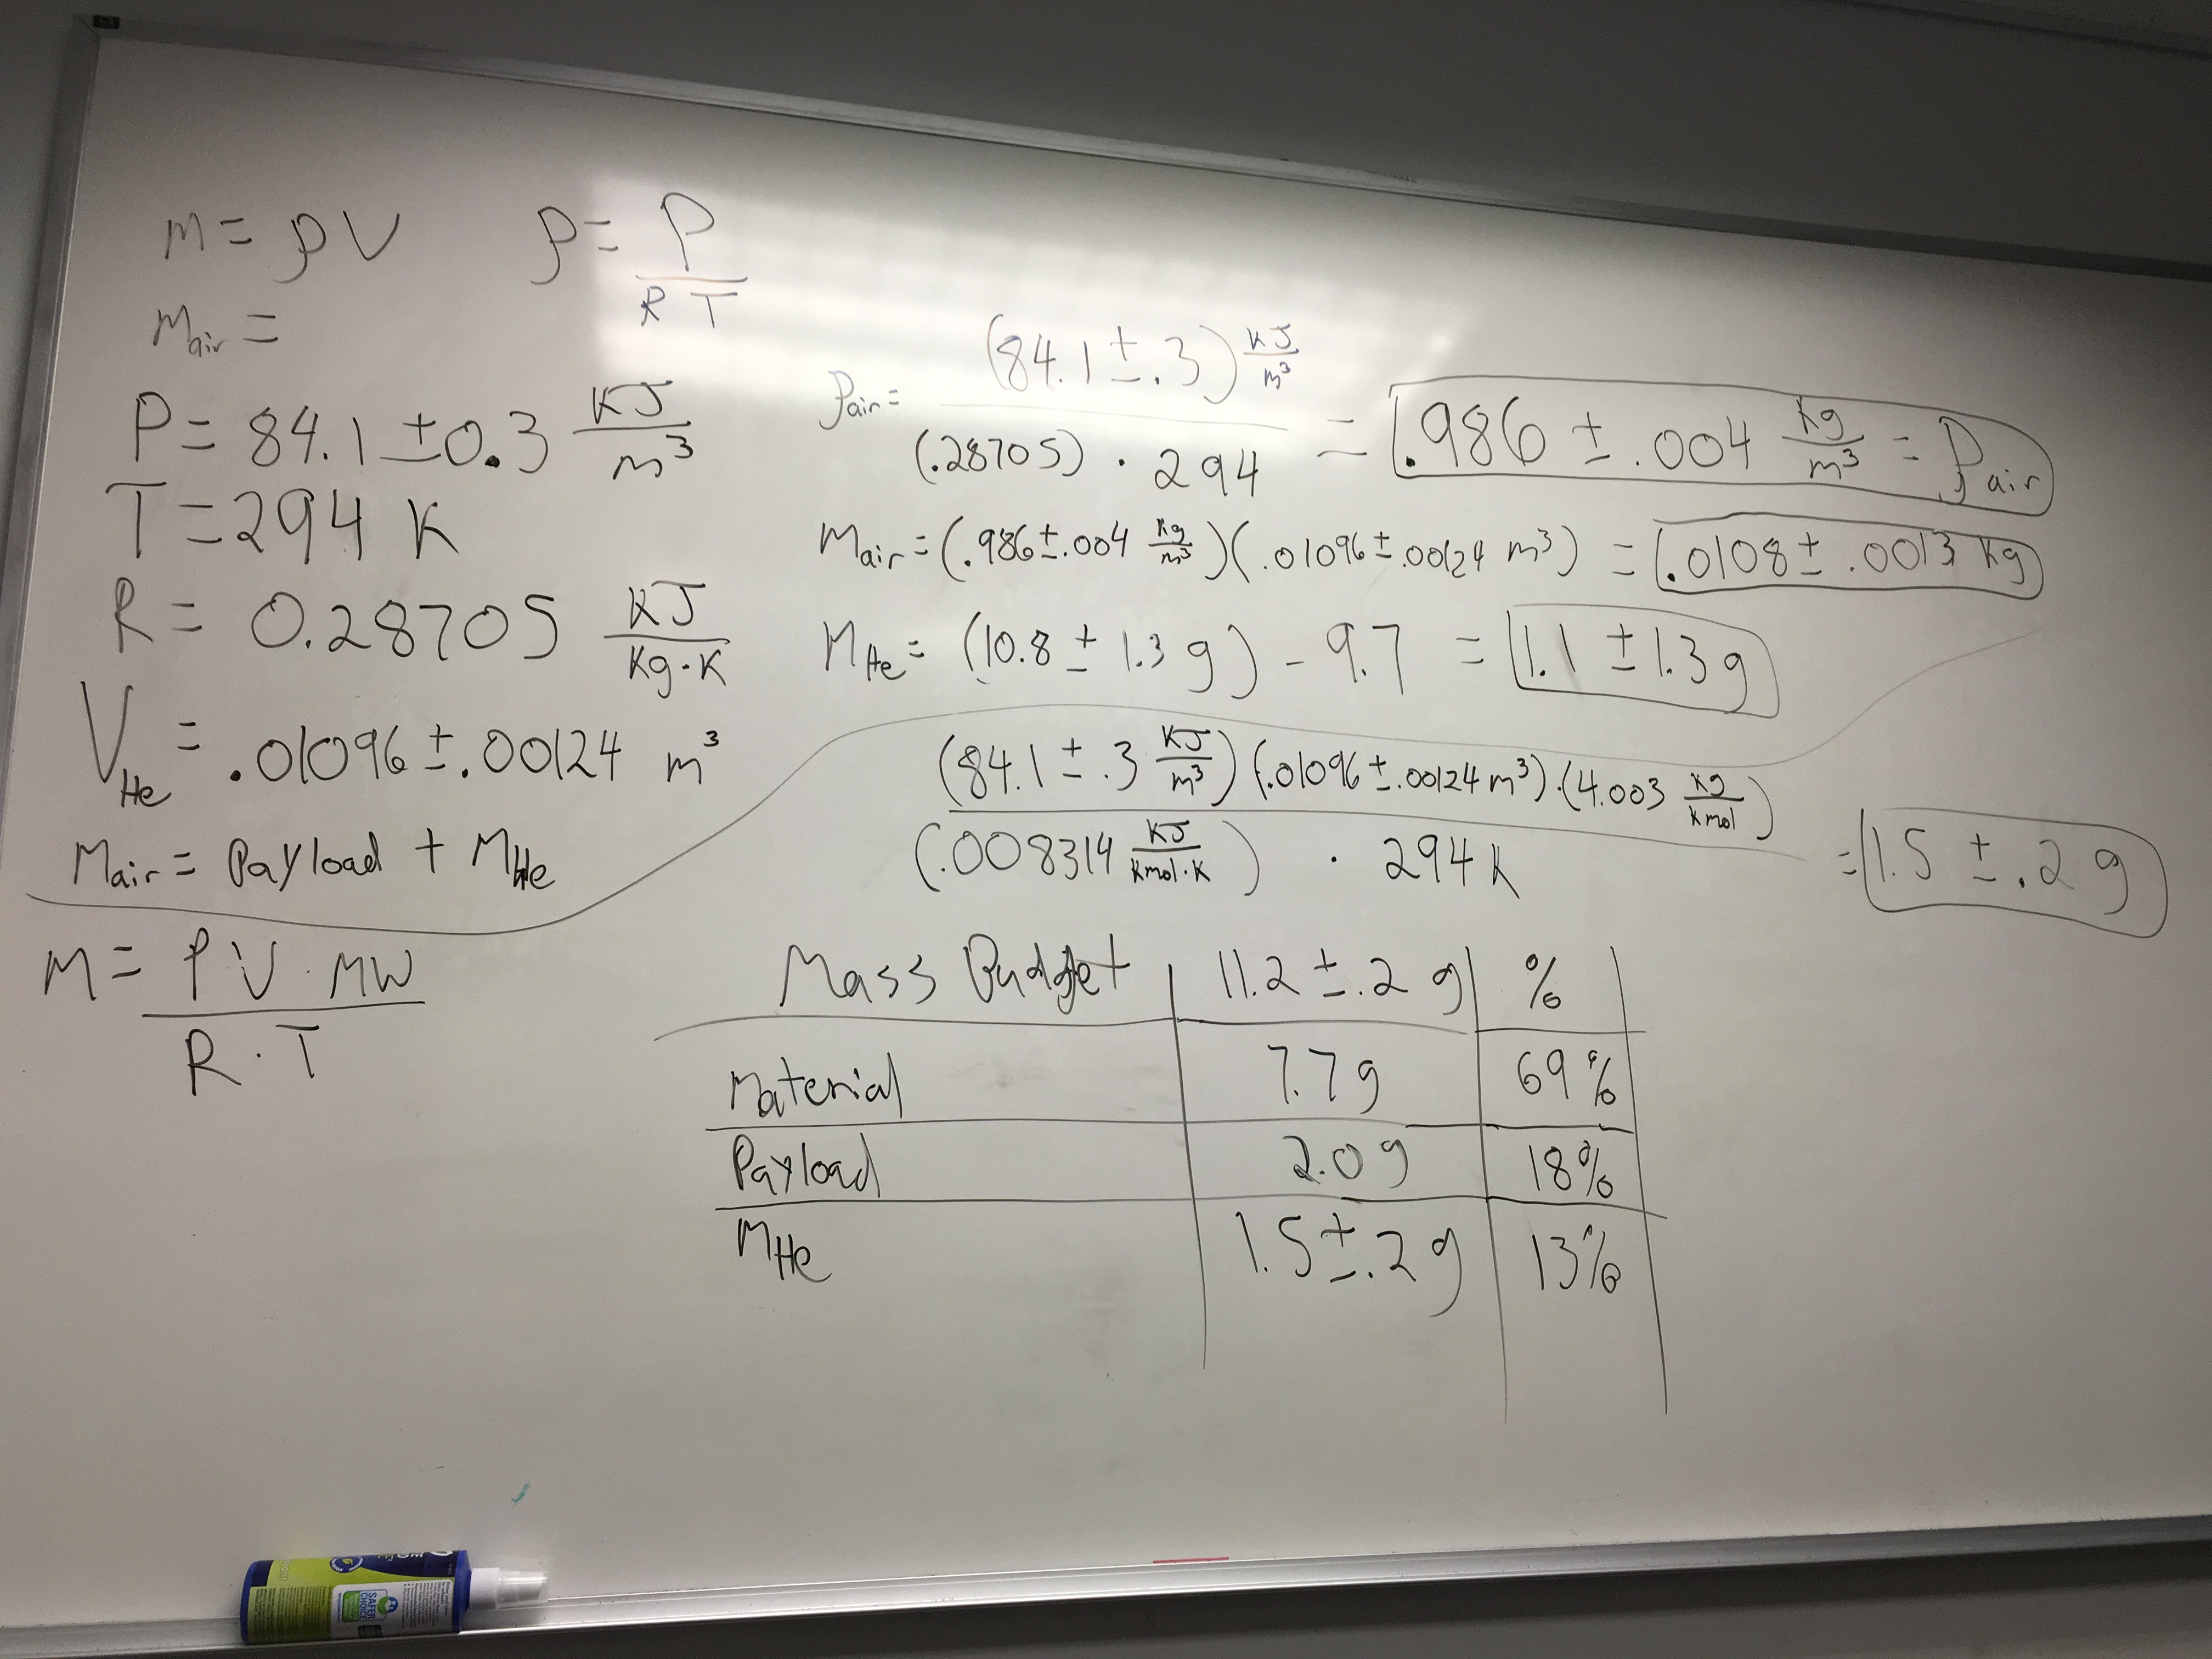 m = ρV
ρ = P / R T
m air =
P = 84.1 ± 0.3 KJ/m³
T = 294 K
R = 0.28705 KJ/Kg·K
V He = .01096 ± .00124 m³
Mair = Payload + MHe
M = P V · MW / R · T
ρair = (84.1 ± .3) KJ/m³ / (.28705) · 294 = .986 ± .004 Kg/m³ = ρair
Mair = (.986 ± .004 Kg/m³)(.01096 ± .00124 m³) = .0108 ± .0013 Kg
MHe = (10.8 ± 1.3 g) - 9.7 = 1.1 ± 1.3 g
(84.1 ± .3 KJ/m³)(.01096 ± .00124 m³)·(4.003 Kg/Kmol) / (.008314 KJ/Kmol·K) · 294 K = 1.5 ± .2 g
Mass Budget 11.2 ± .2 g %
Material 7.7 g 69%
Payload 2.0 g 18%
MHe 1.5 ± .2 g 13%
SAFER CHOICE